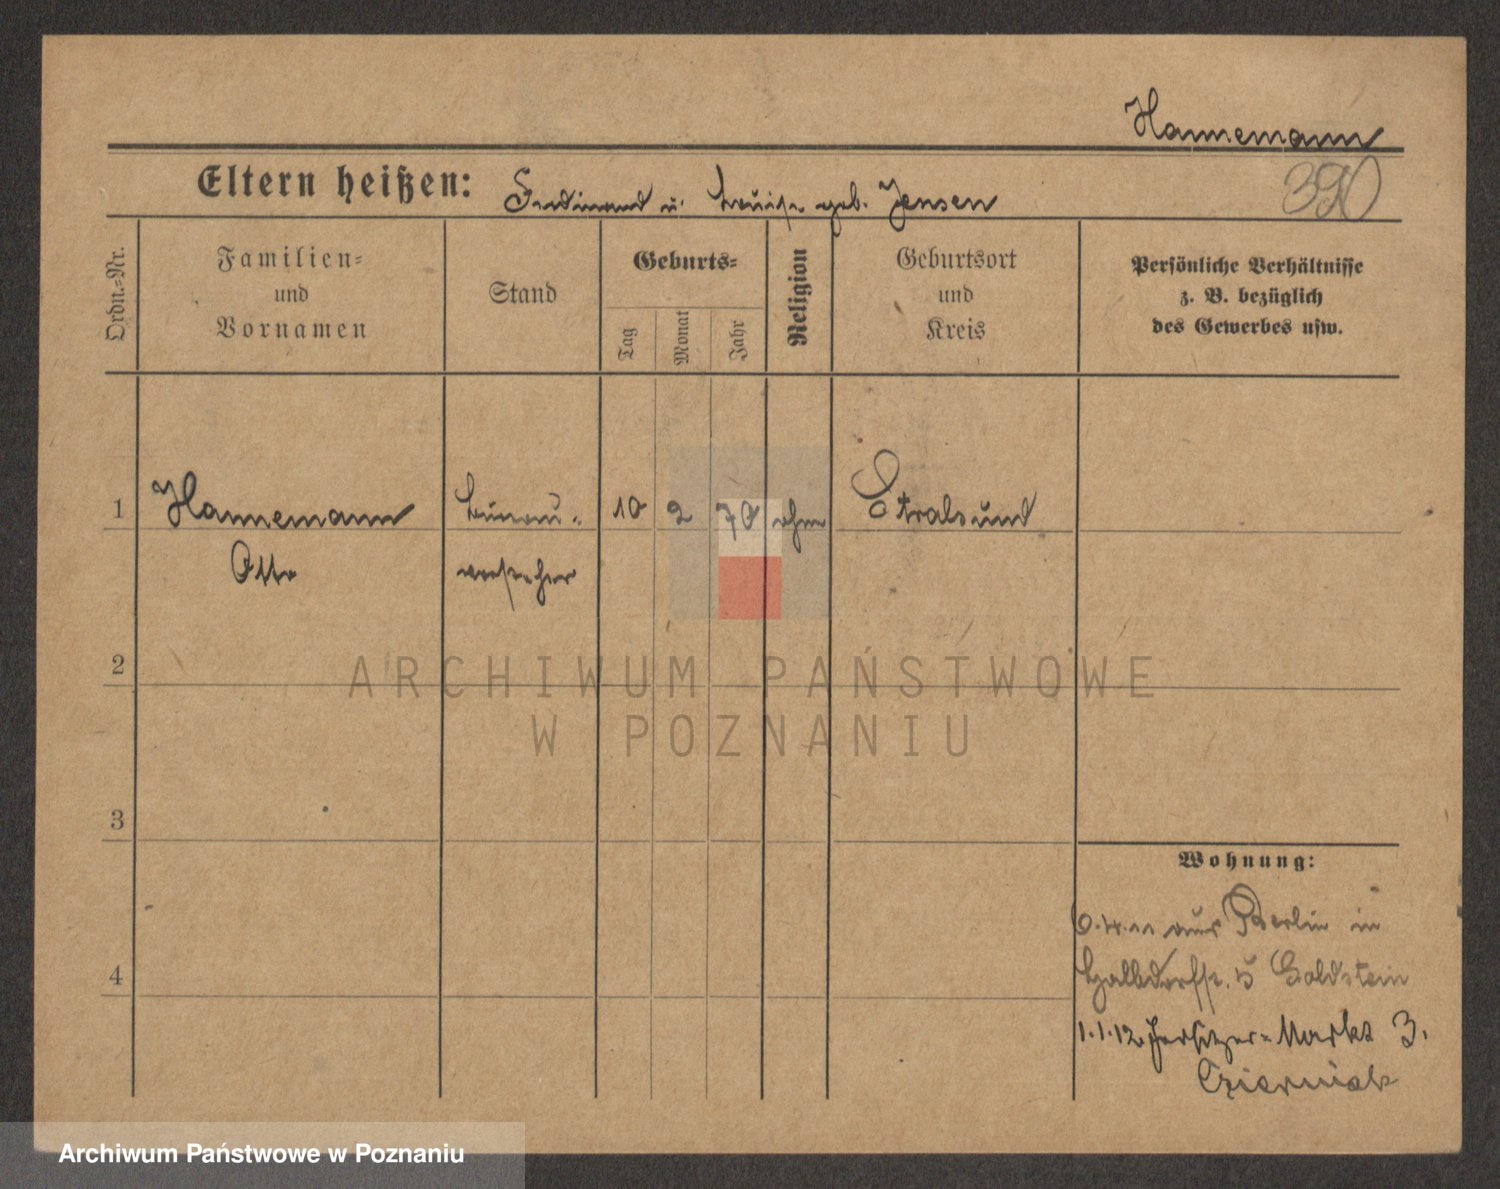 Hannemann
390
Eltern heißen: Ferdinand u. Louise geb. Jensen
Ordn.=Nr.
Familien=
und
Vornamen
Stand
Geburts=
Tag
Monat
Jahr
Religion
Geburtsort
und
Kreis
Persönliche Verhältnisse
z. B. bezüglich
des Gewerbes usw.
1 Hannemann Bureau- 10 2 70 Stralsund
Otto vorsteher
2
3
4
Wohnung:
6.4.11 aus Berlin in
5 Goldstein
1.1.12 Jersitzer-Markt 3.
Czierniak
ARCHIWUM PAŃSTWOWE
W POZNANIU
Archiwum Państwowe w Poznaniu